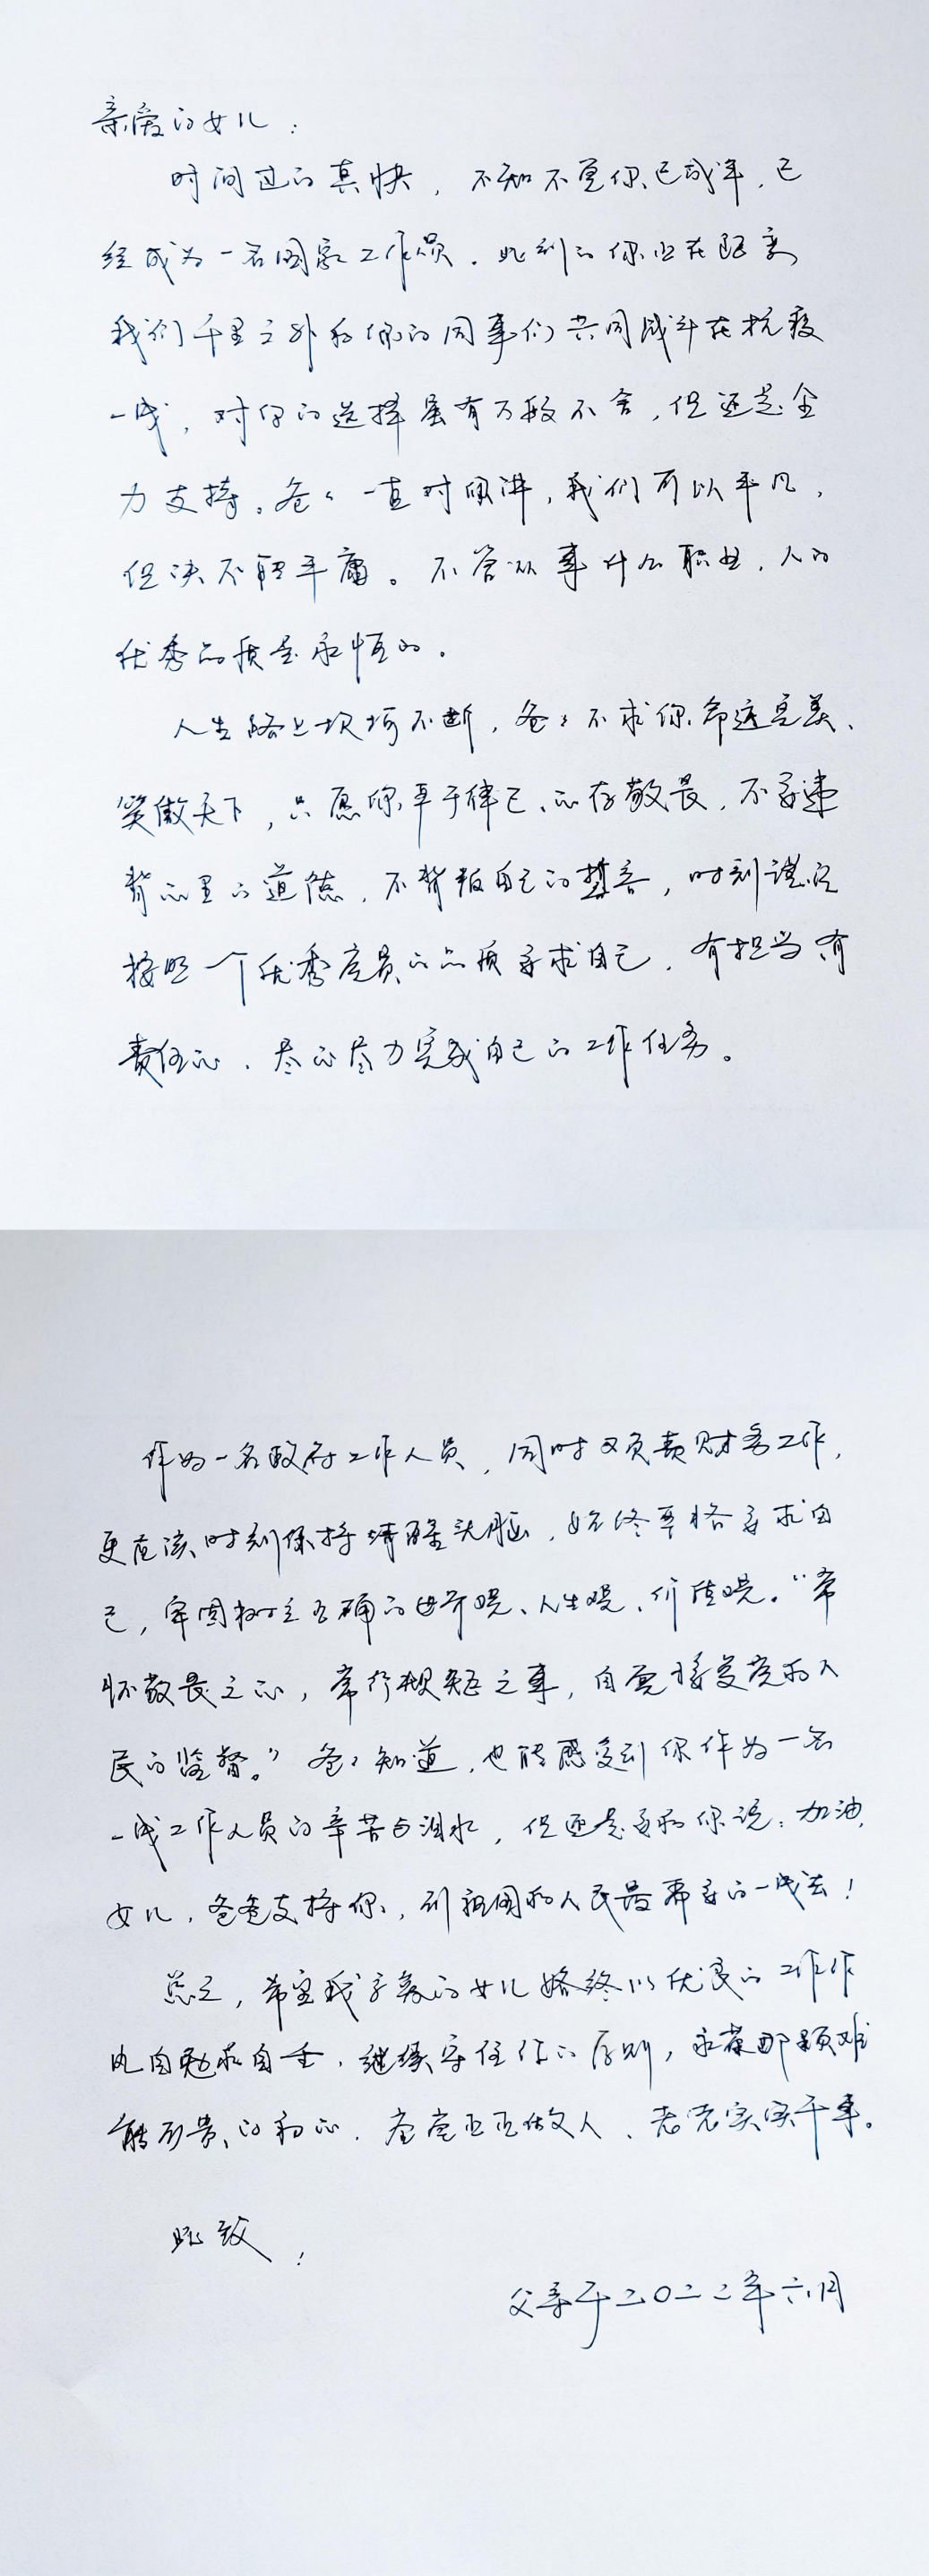 亲爱的女儿：
时间过的真快，不知不觉你已成年，已
经成为一名国家工作人员。此刻的你正在距离
我们千里之外和你的同事们共同战斗在抗疫
一线，对你的选择虽有万般不舍，但还是全
力支持。爸爸一直对你讲，我们可以平凡，
但决不能平庸。不管从事什么职业，人的
优秀品质是永恒的。
人生路上坎坷不断，爸爸不求你命运完美、
笑傲天下，只愿你严于律己、心存敬畏，不要违
背心里的道德，不背叛自己的誓言，时刻谨记
按照一个优秀党员的品质要求自己，有担当有
责任心，尽心尽力完成自己的工作任务。
作为一名政府工作人员，同时又负责财务工作，
更应该时刻保持清醒头脑，始终严格要求自
己，牢固树立正确的世界观、人生观、价值观。“常
怀敬畏之心，常行规矩之事，自觉接受党和人
民的监督。”爸爸知道，也能感受到你作为一名
一线工作人员的辛苦与泪水，但还是要和你说：加油，
女儿，爸爸支持你，到祖国和人民最需要的一线去！
总之，希望我亲爱的女儿始终以优良的工作作
风自勉和自重，继续守住你的原则，永葆那颗难
能可贵的初心，堂堂正正做人、老老实实干事。
此致！
父亲于二〇二二年六月